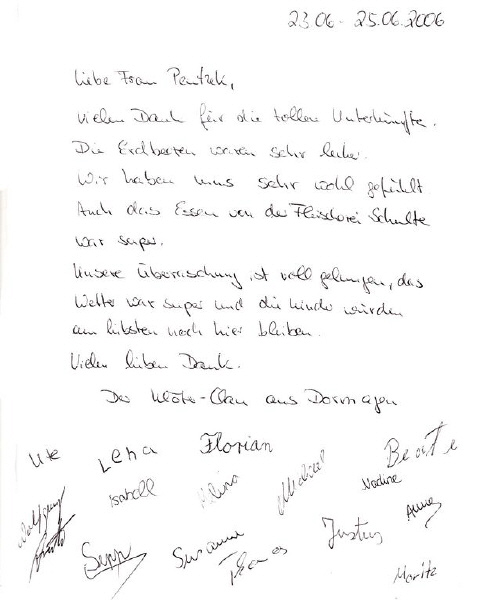 23.06 - 25.06.2006
Liebe Frau Pentzek,
vielen Dank für die tollen Unterkünfte.
Die Erdbeeren waren sehr lecker.
Wir haben uns sehr wohl gefühlt
Auch das Essen von der Fleischerei Schulte
war super.
Unsere Überraschung ist voll gelungen, das
Wetter war super und die Kinder würden
am liebsten noch hier bleiben.
Vielen lieben Dank.
Der Klöter-Clan aus Dormagen
Ute Lena Florian Beate
Wolfgang Isabell Michael Nadine Anne
Sepp Susanne Thomas Justus
Moritz